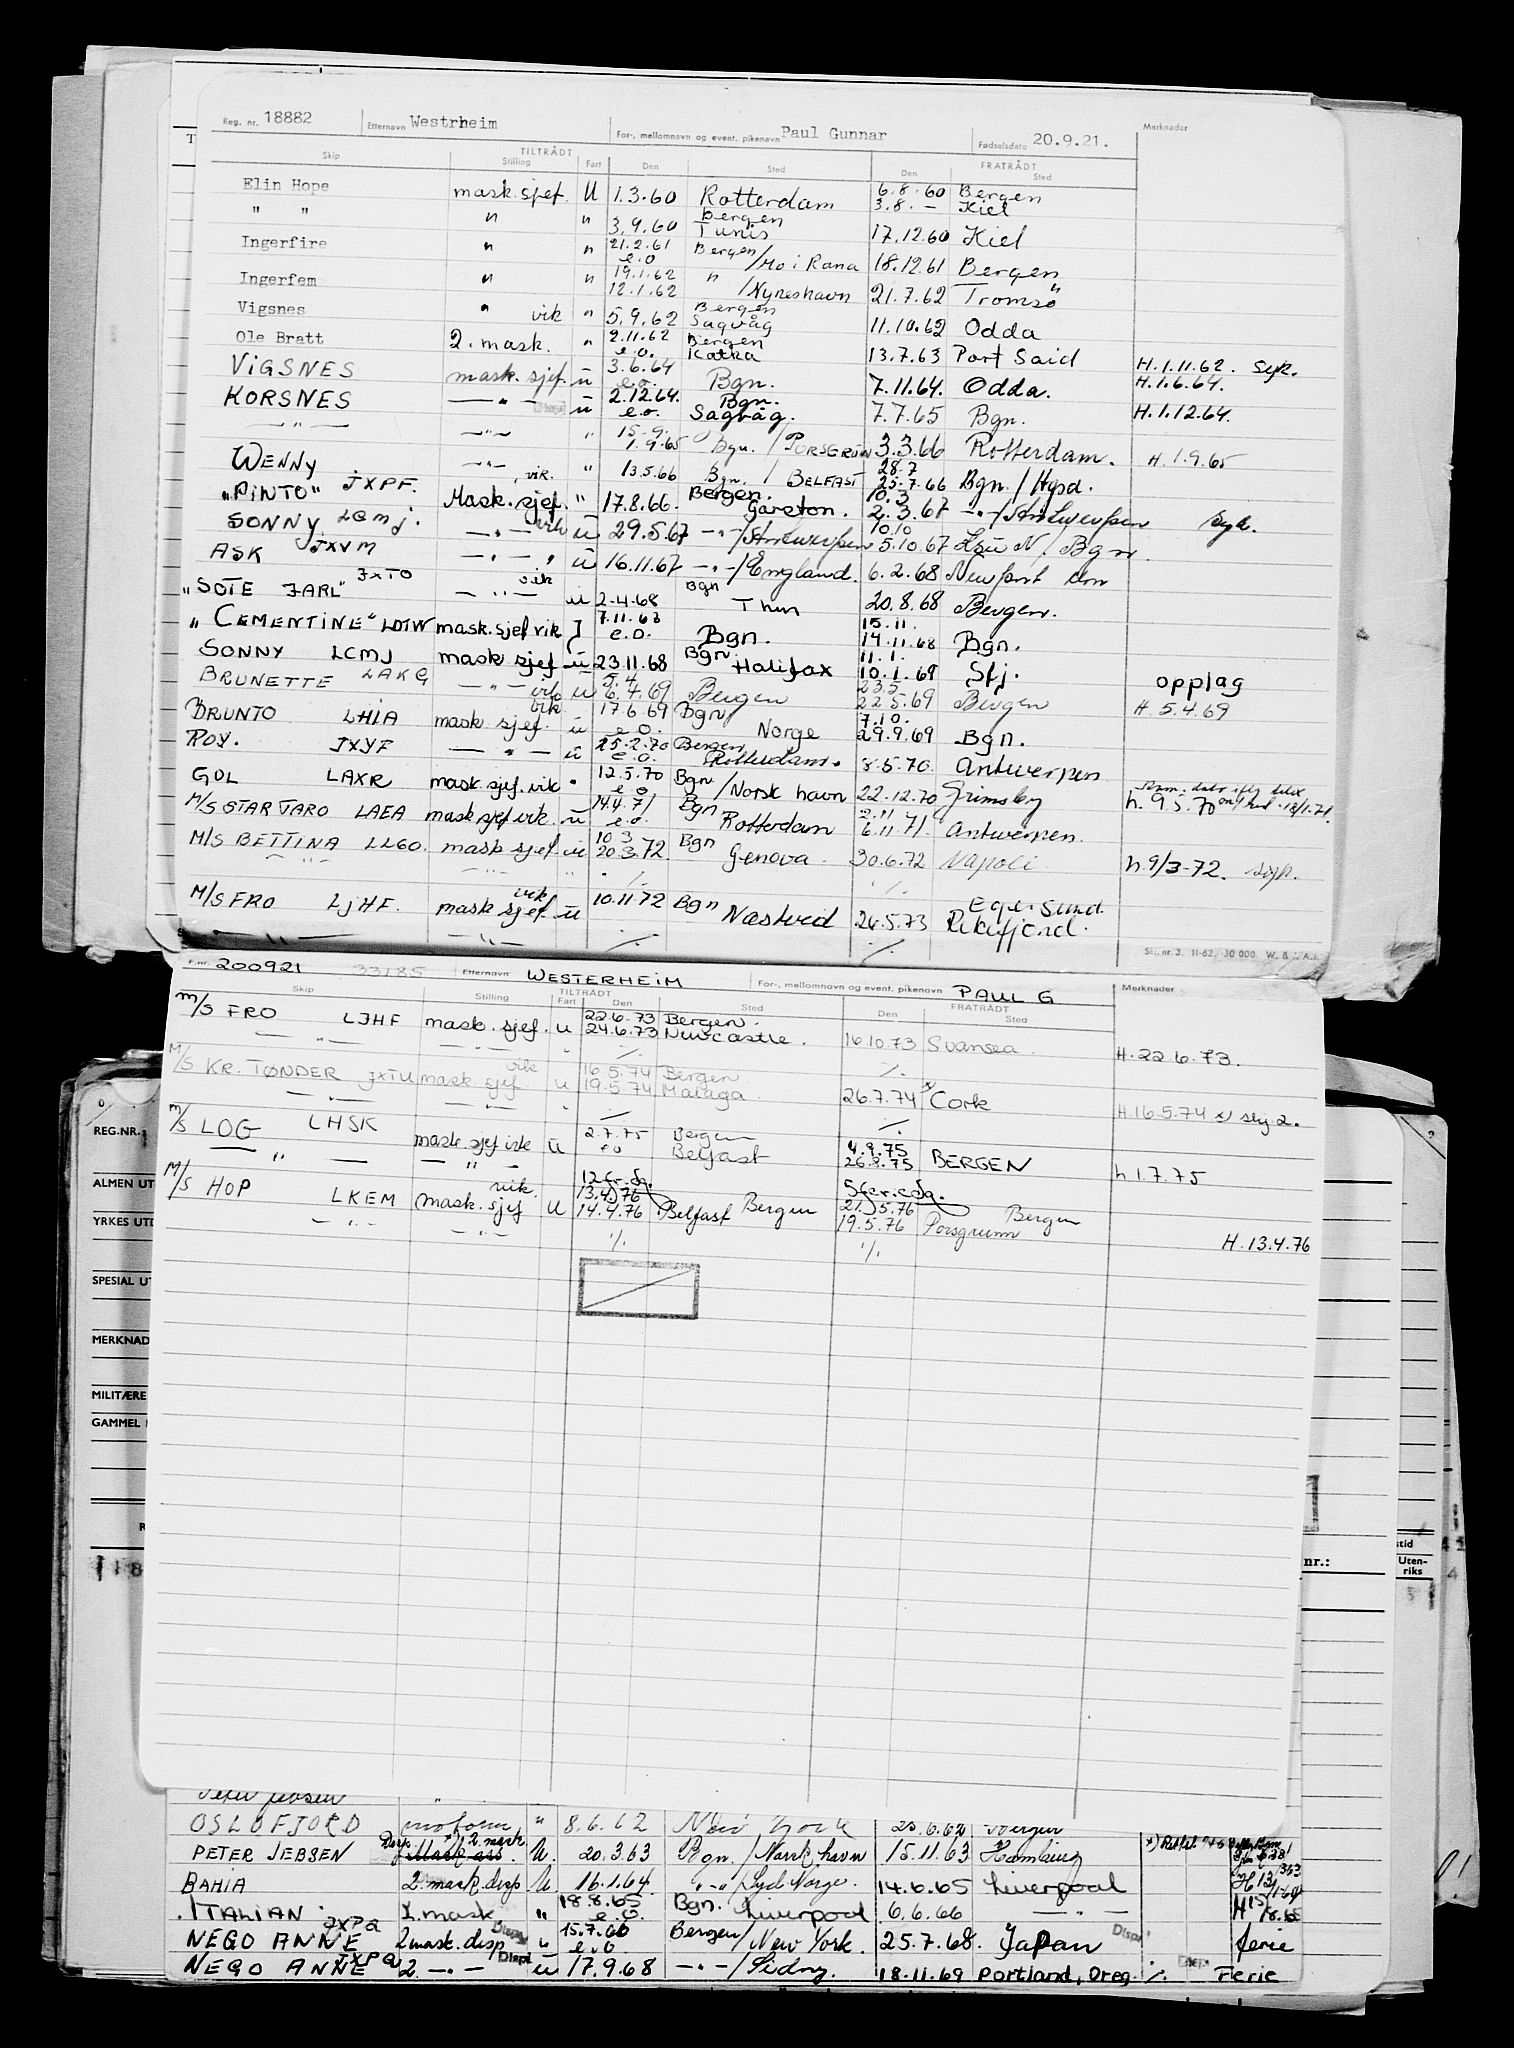 Reg. nr. 18882 Etternavn Westrheim For-, mellomnavn og event. pikenavn Paul Gunnar Fødselsdato 20.9.21. Merknader
TILTRÅDT FRATRÅDT
Skip Stilling Fart Den Sted Den Sted
Elin Hope mask.sjef. U 1.3.60 Rotterdam 6.8.60 Bergen
3.8. — Kiel
" " " " 3.9.60 Bergen Tunis 17.12.60 Kiel
Ingerfire " " 21.2.61 e.o Bergen /Mo i Rana 18.12.61 Bergen
Ingerfem " " 19.1.62 12.1.62 " /Nyneshavn 21.7.62 Tromsø "
Vigsnes " vik " 5.9.62 Bergen Sagvåg 11.10.62 Odda
Ole Bratt 2. mask. " 2.11.62 e.o. Bergen Kotka 13.7.63 Port Said H.1.11.62. Syk.
VIGSNES mask. sjef. ü 3.6.64 e.o. Bgn. 7.11.64. Odda. H.1.6.64.
KORSNES — " — ü 2.12.64. e.o. Bgn. Sagvåg. 7.7.65 Bgn. H.1.12.64.
— " — — " — " 15.9. 1.9.65 Bgn. / PORSGRUN 3.3.66 Rotterdam. H.1.9.65
WENNY JXPF. — " — vik. " 13.5.66 Bgn. / BELFAST 28.7 25.7.66 Bgn / Hgsd.
"PINTO" LEMJ. Mask. sjef. " 17.8.66. Bergen. Garston. 10.3 2.3.67 — " —/Antwerpen Syk.
SONNY JXVM — " — vik ü 29.5.67 — " —/Antwerpen 10.10 5.10.67 / Bgn.
ASK JXTO — " — " ü 16.11.67 — " —/England. 6.2.68 Newport
"SOTE JARL" — " — vik ü 2.4.68 Bgn 20.8.68 Bergen.
"CEMENTINE" LDIW mask. sjef vik J 7.11.63 e.o. Bgn. 15.11. 14.11.68 Bgn.
SONNY LCMJ mask sjef ü 23.11.68 Bgn Halifax 11.1. 10.1.69 Sfj. opplag
BRUNETTE LAKG — " — vik ü 5.4 6.4.69 Bergen 23.5 22.5.69 Bergen H 5.4.69
BRUNTO LHIA mask. sjef. vik ü 17.6.69 e.o. Bgn Norge 7.10. 29.9.69 Bgn.
ROY. JXYF — " — ü 25.2.70 e.o. Bergen Rotterdam. 8.5.70. Antwerpen
GOL LAXR mask. sjef. vik " 12.5.70 e.o Bgn /Norsk havn 22.12.70 Grimsby h. 9.5.70
M/S STAR TARO LAEA mask sjef vik. ü 14.4.71 e.o. Bgn Rotterdam 2.11 6.11.71. Antwerpen.
M/S BETTINA LLGO. mask sjef. ü 10.3 20.3.72. Bgn Genova. 30.6.72 Napoli h.9/3-72. syk.
— " — — " — " ./. ./.
M/S FRO LJHF. mask sjef vik ü 10.11.72 Bgn Næstved 26.5.73 Egersund. Rekefjord.
— " — — " — ./. ./.
Skj.nr.3. 11-62. 30 000. W. & Co. A.s.
F.nr. 200921 33185 Etternavn WESTERHEIM For-, mellomnavn og event. pikenavn PAUL G Merknader
TILTRÅDT FRATRÅDT
Skip Stilling Fart Den Sted Den Sted
M/S FRO LJHF mask. sjef. u 22.6.73 Bergen.
— " — — " — " 24.6.73 Newcastle. 16.10.73 Svansea. H.22.6.73.
./. ./.
M/S KR. TØNDER JXTU mask sjef. vik u 16.5.74 Bergen
19.5.74 Malaga. 26.7.74 x) Cork H.16.5.74 x) skj 2.
— " — — " — " ./. ./.
M/S LOG LHSK mask. sjef vik ü 2.7.75 Bergen 4.9.75
— " — — " — eo Belfast 26.8.75 BERGEN h 1.7.75
M/S HOP LKEM mask. sjef vik. u 13.4.76 14.4.76 Belfast Bergen 21.5.76 Bergen
— " — — " — 19.5.76 Porsgrunn H.13.4.76
./. ./.
REG.NR.
ALMEN UT
YRKES UTD
SPESIAL UT
MERKNAD
MILITÆRE
GAMMEL
nr.:
stid
Uten-
riks
Peter Jebsen "
OSLOFJORD motorm " 8.6.62 New York 20.6.62 Bergen
PETER JEBSEN 2. mask. Mask ass. U. 20.3.63 Bgn. / Norsk havn 15.11.63 Hamburg
BAHIA 2. mask. disp U. 16.1.64. — " —/Syd Norge. 14.6.65 Liverpool
ITALIAN. 2. mask " 18.8.65 e.o. Bgn. Liverpool 6.6.66 — " —
NEGO ANNE JXPQ 2 mask. disp u 15.7.66 e.o Bergen / New York. 25.7.68. Japan Disp! ferie
NEGO ANNE JXPQ 2. — " — Disp! ü 17.9.68 — " —/Sidny. 18.11.69 Portland, Oreg. ./. Ferie